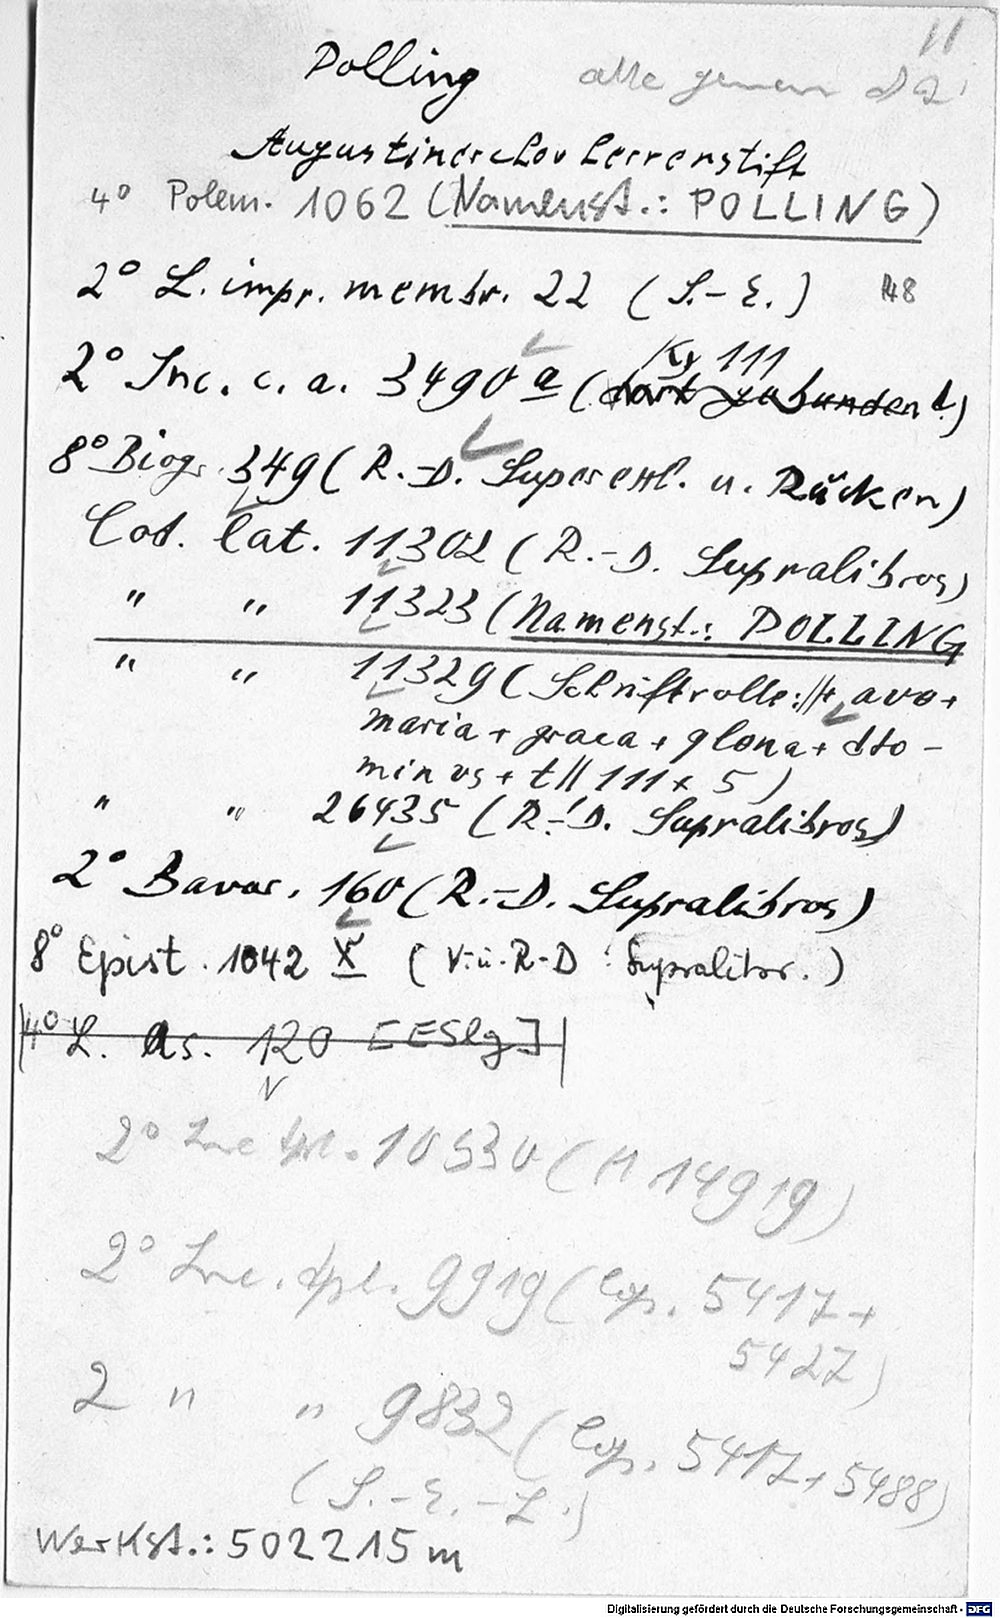 11
Polling
Augustinerchorherrenstift
4° Polem. 1062 (Namenst.: POLLING)
2° L. impr. membr. 22 (S.-E.) 148
2° Inc. c. a. 3490 a (Ky 111
8° Biogr. 349 (R.-D. Superexl. u. Rücken)
Cod. lat. 11302 (R.-D. Supralibros)
" " 11323 (Namenst.: POLLING
" " 11329 (Schriftrolle: // + avo +
maria + graca + glona + dto -
min us + t // 111 x 5)
" " 26435 (R.-D. Supralibros)
2° Bavar. 160 (R.-D. Supralibros)
8° Epist. 1042 X (V. u. R-D: Supralibr.)
4° L. As. 120 [ESlg]
2° Inc dpl. 10530 (H 14919)
2° Inc. dpl. 9919 (Cop. 5417 +
5427)
2 " " 9832 (Cop. 5417 + 5488)
(S.-E.-L.)
Werkst.: 502215 m
Digitalisierung gefördert durch die Deutsche Forschungsgemeinschaft - DFG